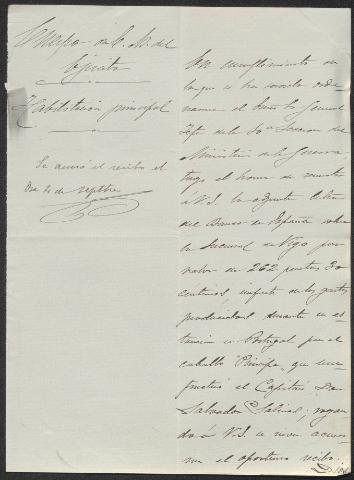 Cuerpo de E. M. del
Ejército
Habilitación principal
Se acusó el recibo el
dia 20 de septbre
En cumplimiento de
lo que se ha servido orde-
narme el Excmo Sr General
Jefe de la 10ª Seccion del
Ministerio de la Guerra,
tengo el honor de remitir
á V.S. la adjunta letra
del Banco de España sobre
la Sucursal de Vigo por
valor de 262 pesetas 30
centimos, importe de los gastos
producidos durante su es-
tancia en Portugal por el
caballo Principe, que usu-
fructúa el Capitán Dn
Salvador Salinas; rogan-
do á V.S. se sirva acusar-
me el oportuno recibo.